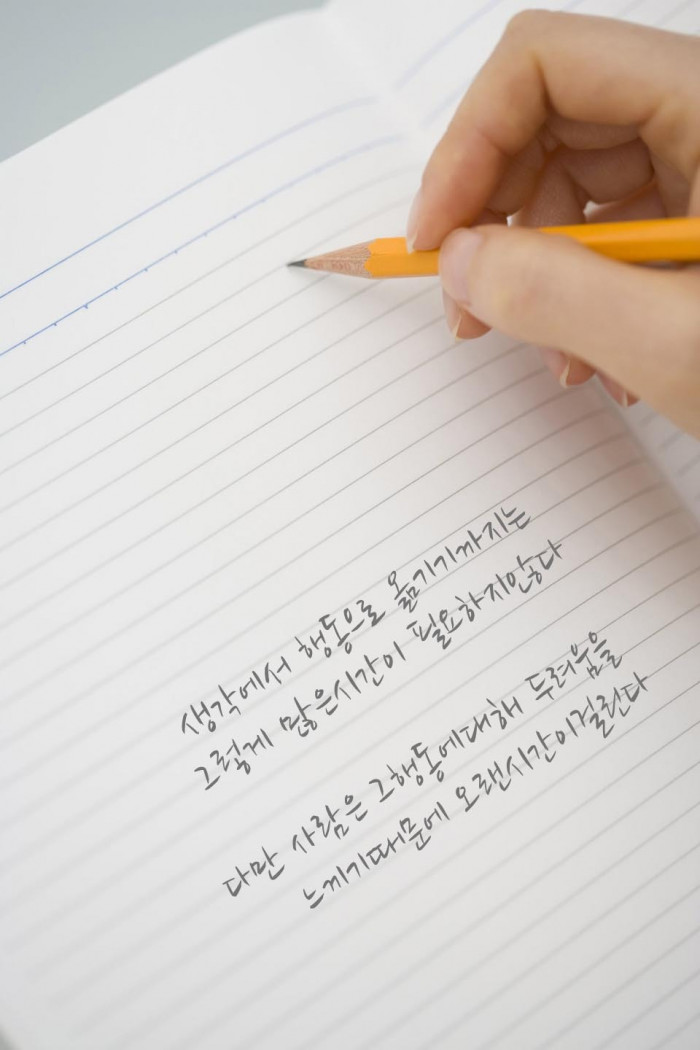 생각에서 행동으로 옮기기까지는
그렇게 많은시간이 필요하지않다
다만 사람은 그행동에대해 두려움을
느끼기때문에 오랜시간이걸린다